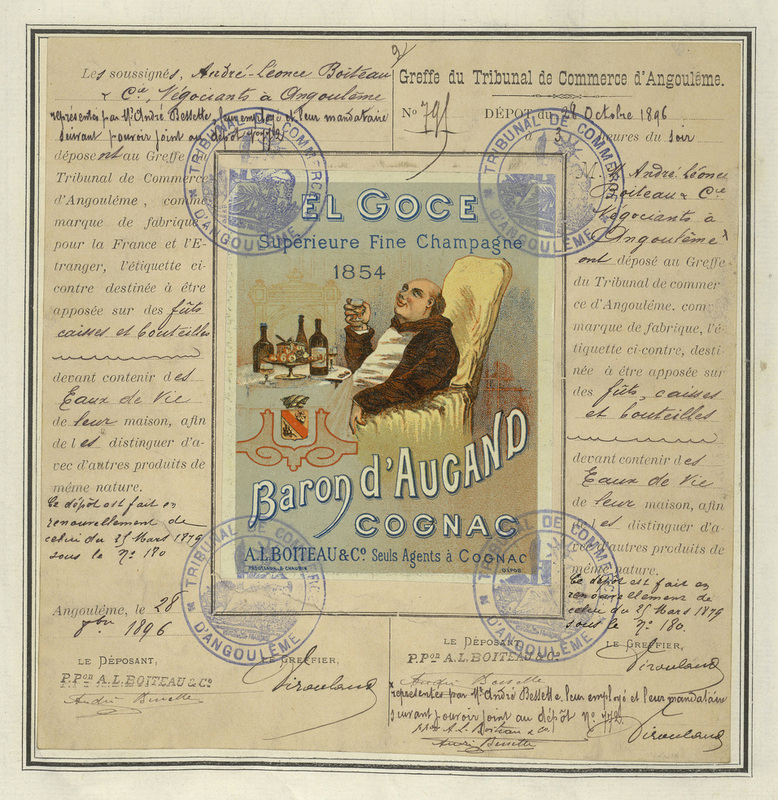 2
Les soussignés, André-Léonce Boiteau
& Cie, Négociants à Angoulême
représentés par Mr André Bessette, leur employé et leur mandataire
suivant pouvoir joint au dépôt
déposent au Greffe du
Tribunal de Commerce
d'Angoulême, comme
marque de fabrique
pour la France et l'É-
tranger, l'étiquette ci-
contre destinée à être
apposée sur des fûts
caisses et bouteilles
devant contenir des
Eaux de Vie
de leur maison, afin
de les distinguer d'a-
vec d'autres produits de
même nature.
Ce dépôt est fait en
renouvellement de
celui du 25 Mars 1879
sous le No 180
Angoulême, le 28
8bre 1896
LE DÉPOSANT,
P.Pon A.L.BOITEAU & Co
André Bessette
LE GREFFIER,
Greffe du Tribunal de Commerce d'Angoulême.
No 795
DÉPOT du 28 Octobre 1896
à 3 heures du soir
M. André Léonce
Boiteau & Cie
Négociants à
Angoulême
ont déposé au Greffe
du Tribunal de commer
ce d'Angoulême. com
marque de fabrique, l'é-
tiquette ci-contre, desti-
née à être apposée sur
des fûts, caisses
et bouteilles
devant contenir des
Eaux de Vie
de leur maison, afin
les distinguer d'a-
vec d'autres produits de
même nature.
Ce dépôt est fait en
renouvellement de
celui du 25 Mars 1879
sous le No 180.
LE DÉPOSANT
P.Pon A.L.BOITEAU & Co
André Bessette
LE GREFFIER,
représentés par Mr André Bessette, leur employé et leur mandataire
suivant pouvoir joint au dépôt No 772
PPon A L Boiteau & Co
André Bessette
EL GOCE
Supérieure Fine Champagne
1854
Baron d'AUGAND
COGNAC
A.L.BOITEAU & Co. Seuls Agents à COGNAC
DÉPOSÉ
TRIBUNAL DE COMMERCE
D'ANGOULÊME
TRIBUNAL DE COMMERCE
D'ANGOULÊME
TRIBUNAL DE COMMERCE
D'ANGOULÊME
TRIBUNAL DE COMMERCE
D'ANGOULÊME